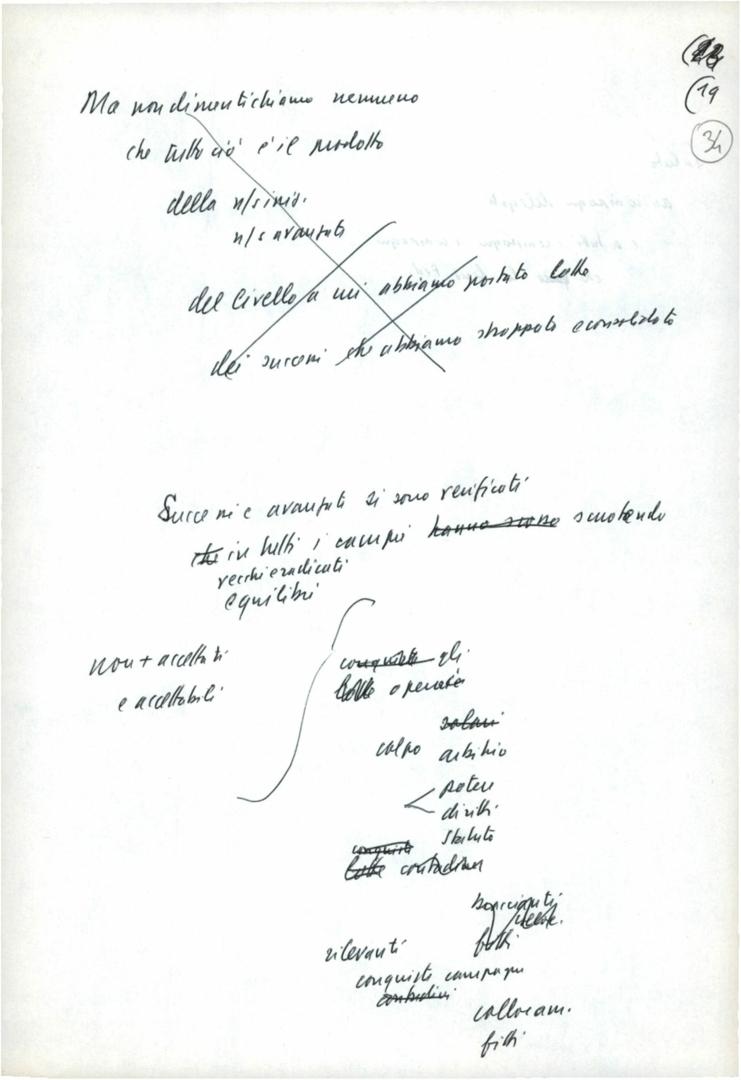 (19
34
Ma non dimentichiamo nemmeno
che tutto ciò è il prodotto
della n/s iniz.
n/s avanzata
del livello a cui abbiamo portato lotte
dei successi che abbiamo strappato e consolidato
Successi e avanzati si sono verificati
che in tutti i campi hanno scosso scuotendo
vecchi e radicati
equilibri
non + accettati
e accettabili
conquiste gli
lotte operaie
colpo
salari
arbitrio
potere
diritti
statuto
conquiste
lotte contadine
fitti
rilevanti
conquiste campagne
contadini
collocam.
fitti